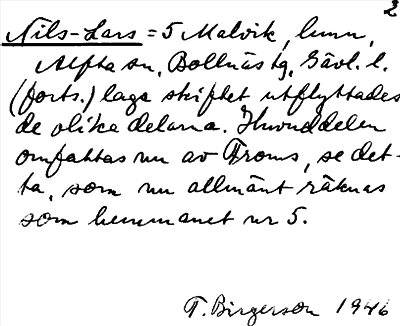 2
Nils-Lars = 5 Malvik, hmn,
Alfta sn, Bollnäs tg, Gävl. l.
(forts.) laga skiftet utflyttades
de olika delarna. Huvuddelen
omfattas nu av Froms, se det-
ta, som nu allmänt räknas
som hemmanet nr 5.
T. Birgerson 1946